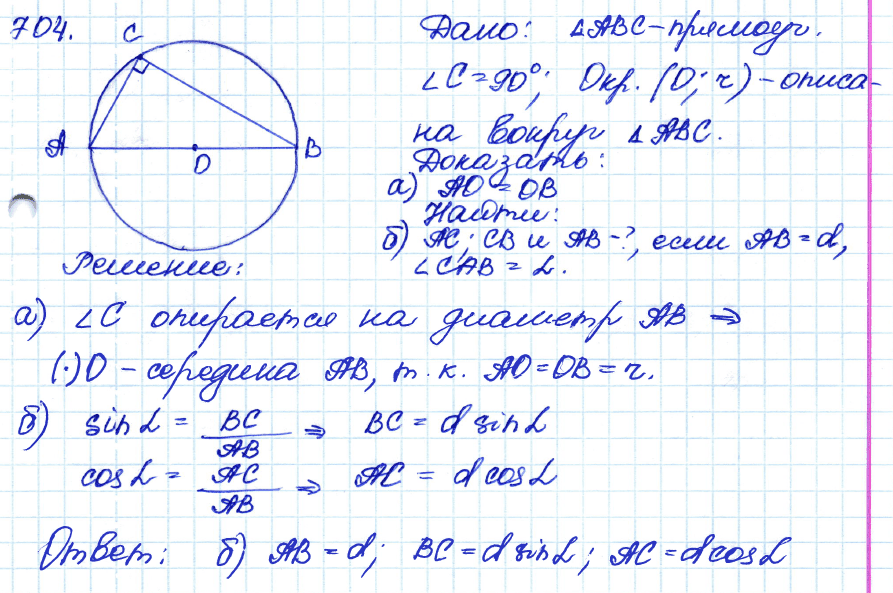 704.
C
A
B
O
Дано: △ABC-прямоуг.
∠C=90°; Окр. (O; r) - описа-
на вокруг △ABC.
Доказать:
а) AO = OB
Найти:
б) AC; CB и AB -?, если AB = d,
∠CAB = α.
Решение:
а) ∠C опирается на диаметр AB ⇒
(·) O - середина AB, т. к. AO = OB = r.
б) sin α = BC/AB ⇒ BC = d sin α
cos α = AC/AB ⇒ AC = d cos α
Ответ: б) AB = d; BC = d sin α; AC = d cos α